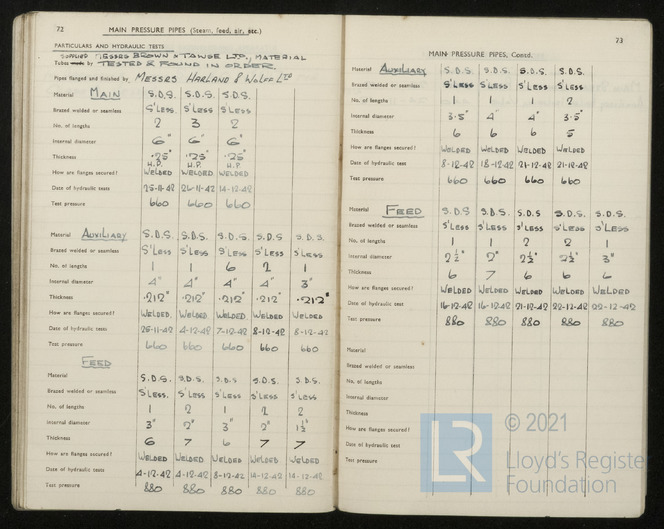 72 MAIN PRESSURE PIPES (Steam, feed, air, etc.)
PARTICULARS AND HYDRAULIC TESTS
SUPPLIED MESSRS BROWN & TAWSE LTD, MATERIAL
Tubes made by TESTED & FOUND IN ORDER.
Pipes flanged and finished by MESSRS HARLAND & WOLFF LTD
Material MAIN S.D.S. S.D.S. S.D.S.
Brazed welded or seamless S'LESS S'LESS S'LESS
No. of lengths 2 3 2
Internal diameter 6" 6" 6"
Thickness .25" .25" .25"
H.P. H.P. H.P.
How are flanges secured? WELDED WELDED WELDED
Date of hydraulic tests 25-11-42 26-11-42 14-12-42
Test pressure 660 660 660
Material AUXILIARY S.D.S. S.D.S. S.D.S. S.D.S. S.D.S.
Brazed welded or seamless S'LESS S'LESS S'LESS S'LESS S'LESS
No. of lengths 1 1 6 2 1
Internal diameter 4" 4" 4" 4" 3"
Thickness .212" .212" .212" .212" .212"
How are flanges secured? WELDED. WELDED WELDED WELDED WELDED
Date of hydraulic tests 25-11-42 4-12-42 7-12-42 8-12-42 8-12-42
Test pressure 660 660 660 660 660
FEED
Material S.D.S. S.D.S. S.D.S S.D.S. S.D.S.
Brazed welded or seamless S'LESS. S'LESS S'LESS S'LESS S'LESS
No. of lengths 1 2 1 2 2
Internal diameter 3" 2" 3" 2" 1½"
Thickness 6 7 6 7 7
How are flanges secured? WELDED WELDED WELDED WELDED WELDED
Date of hydraulic tests 4-12-42 4-12-42 8-12-42 14-12-42 14-12-42
Test pressure 880 880 880 880 880
73
MAIN PRESSURE PIPES, Contd.
Material AUXILIARY S.D.S. S.D.S. S.D.S. S.D.S.
Brazed welded or seamless S'LESS S'LESS S'LESS S'LESS
No. of lengths 1 1 1 2
Internal diameter 3.5" 4" 4" 3.5"
Thickness 6 6 6 5
How are flanges secured? WELDED WELDED WELDED WELDED
Date of hydraulic test 8-12-42 18-12-42 21-12-42 21-12-42
Test pressure 660 660 660 660
Material FEED S.D.S S.D.S. S.D.S S.D.S. S.D.S.
Brazed welded or seamless S'LESS S'LESS S'LESS S'LESS S'LESS
No. of lengths 1 1 2 2 1
Internal diameter 2½" 2" 2½" 2½" 3"
Thickness 6 7 6 6 6
How are flanges secured? WELDED WELDED WELDED WELDED WELDED
Date of hydraulic test 16-12-42 16-12-42 21-12-42 22-12-42 22-12-42
Test pressure 880 880 880 880 880
Material
Brazed welded or seamless
No. of lengths
Internal diameter
Thickness
How are flanges secured?
Date of hydraulic tests
Test pressure
LR © 2021
Lloyd's Register
Foundation